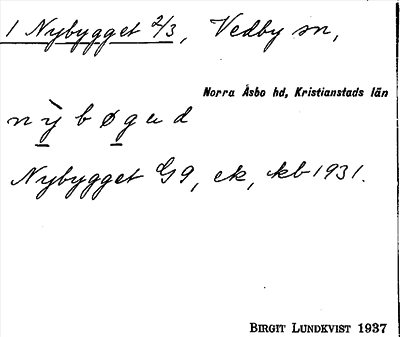 1 Nybygget 2/3, Vedby sn,
Norra Åsbo hd, Kristianstads län
nỳbøgad
Nybygget G9, ek, kb 1931.
BIRGIT LUNDKVIST 1937